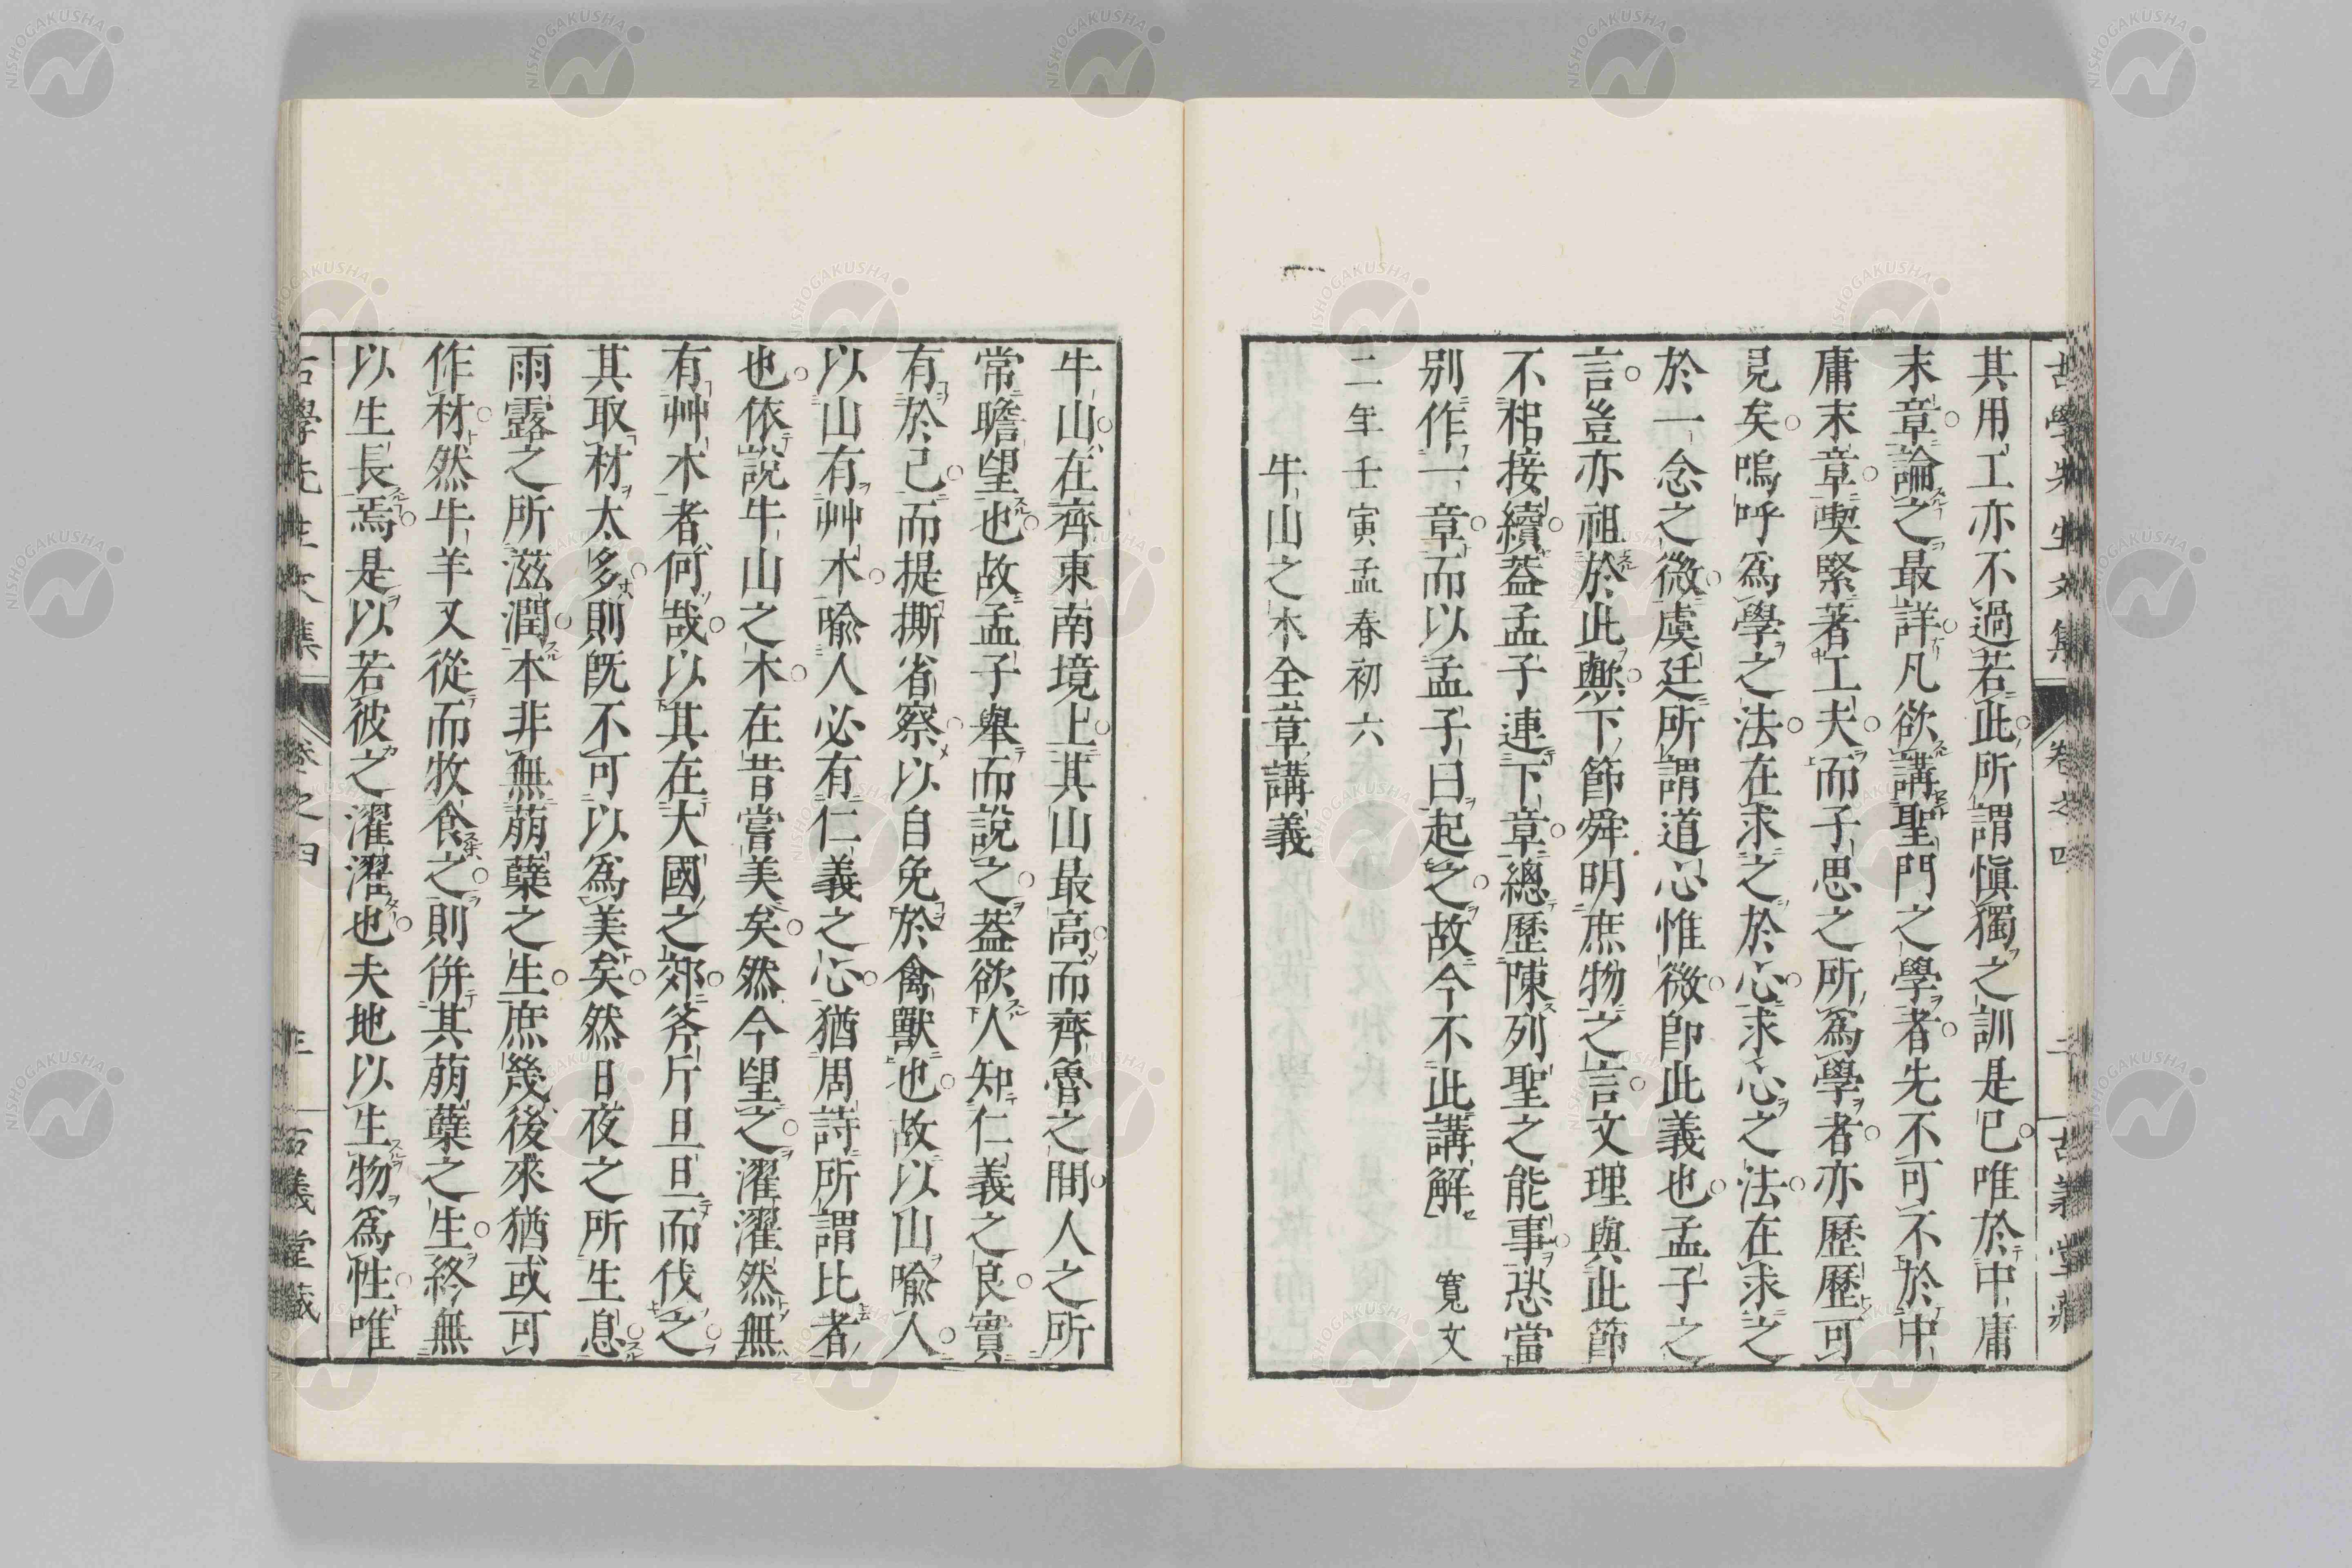 古學先生文集 卷之四 二 古義堂藏
其用工亦不過若此所謂愼獨之訓是已唯於中庸
末章論之最詳凡欲講聖門之學者先不可不於中
庸末章喫緊著工夫而子思之所爲學者亦歷歷可
見矣嗚呼爲學之法在求之於心求心之法在求之
於一念之微虞廷所謂道心惟微卽此義也孟子之
言豈亦祖於此歟下節舜明庶物之言文理與此節
不相接續蓋孟子連下章總歷陳列聖之能事恐當
別作一章而以孟子曰起之故今不此講解 寬文
二年壬寅孟春初六
牛山之木全章講義
牛山在齊東南境上其山最高而齊魯之間人之所
常瞻望也故孟子舉而說之蓋欲人知仁義之良實
有於己而提撕省察以自免於禽獸也故以山喩人
以山有艸木喩人必有仁義之心猶周詩所謂比者
也依說牛山之木在昔嘗美矣然今望之濯濯然無
有艸木者何哉以其在大國之郊斧斤旦旦而伐之
其取材太多則既不可以爲美矣然日夜之所生息
雨露之所滋潤本非無萠蘖之生庶幾後來猶或可
作材然牛羊又從而牧食之則併其萠蘖之生終無
以生長焉是以若彼之濯濯也夫地以生物爲性唯
古學先生文集 卷之四 三 古義堂藏
NISHOGAKUSHA